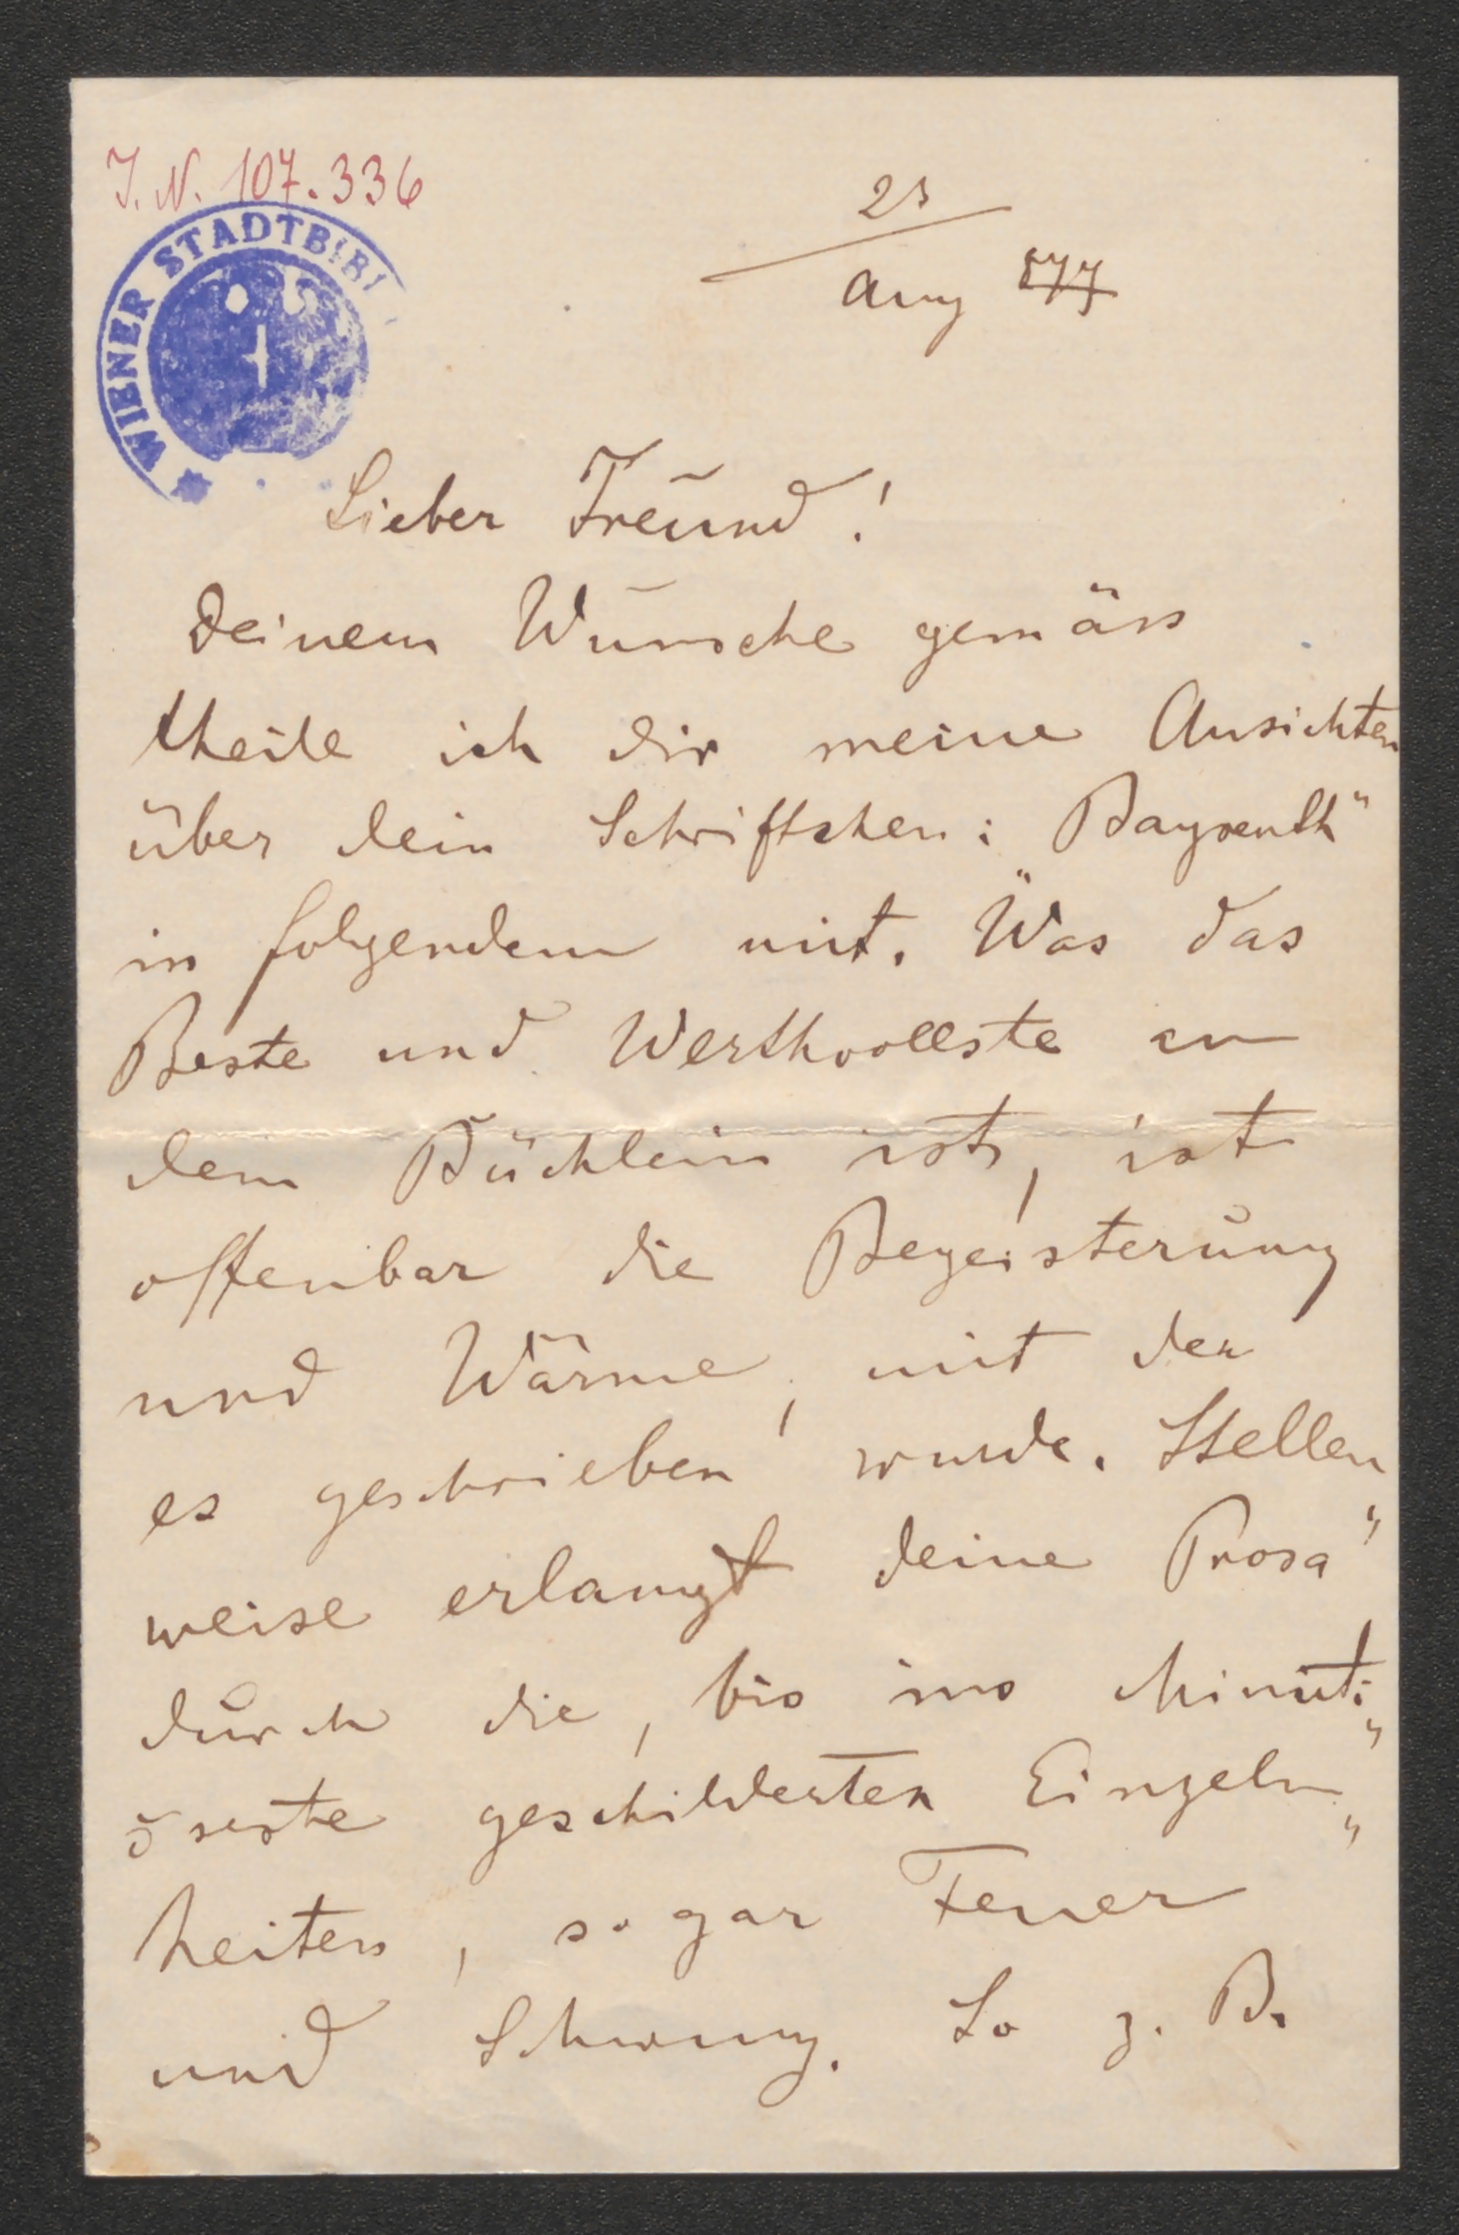 I. N. 107.336
WIENER STADTBIBl
23
Aug 877
Lieber Freund!
Deinem Wunsche gemäss
theile ich dir meine Ansichten
über dein Schriftchen: „Bayreuth“
in folgendem mit. Was das
Beste und Werthvollste an
dem Büchlein ist, ist
offenbar die Begeisterung
und Wärme, mit der
es geschrieben wurde. Stellen„
weise erlangt deine Prosa
durch die, bis ins Minuti„
öseste geschilderten Einzeln„
heiten, sogar Feuer
und Schwung. So z. B.